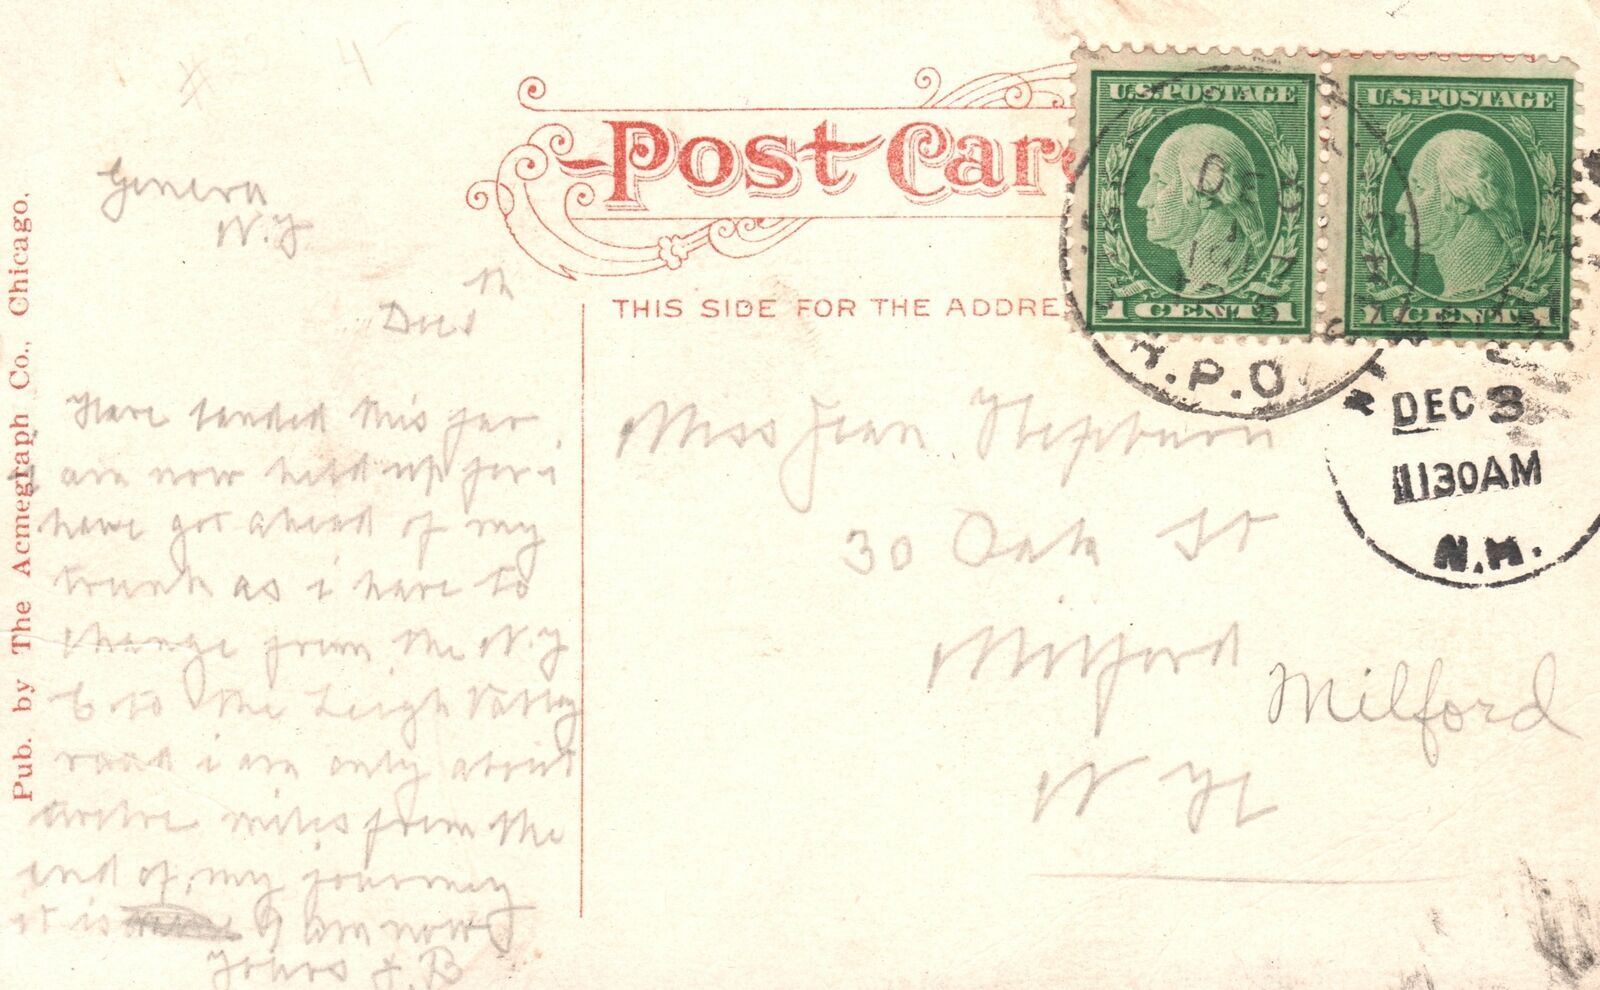 Post Card
THIS SIDE FOR THE ADDRE
U.S. POSTAGE
1 CENT 1
U.S. POSTAGE
CENT 1
DEC
1
R.P.O.
DEC 3
1130AM
N.H.
Pub. by The Acmegraph Co., Chicago.
Geneva
N.Y
Have landed this far
am now held up for i
have got ahead of my
trunk as i have to
change from the N.Y
C to the Leigh Valley
road i am only about
twelve miles from the
end of my journey
it is 9 am now
Yours J. B
Miss Jean Hepburn
30 Oak St
Milford
N H
Milford